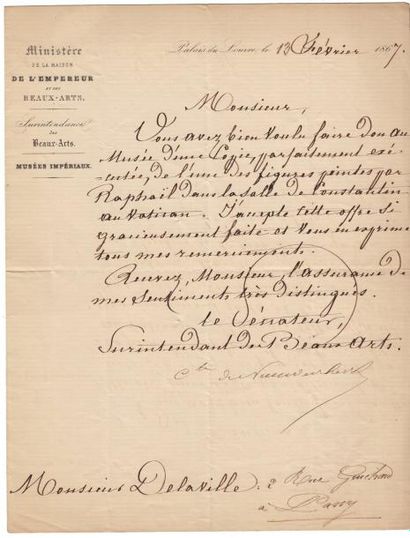 Ministère
DE LA MAISON
DE L'EMPEREUR
ET DES
BEAUX-ARTS.
Surintendance
des
Beaux-Arts.
MUSÉES IMPÉRIAUX.
Palais du Louvre, le 13 Février 1867.
Monsieur,
Vous avez bien voulu faire don au
Musée d'une Copie, parfaitement exé-
cutée, de l'une des figures peintes par
Raphaël dans la salle de Constantin
au Vatican. J'accepte cette offre si
gracieusement faite et vous en exprime
tous mes remerciements.
Recevez, Monsieur, l'assurance de
mes sentiments très distingués.
le Sénateur,
Surintendant des Beaux Arts.
Cte de Nieuwerkerke
Monsieur Delaville. 2 Rue Guichard
à Passy